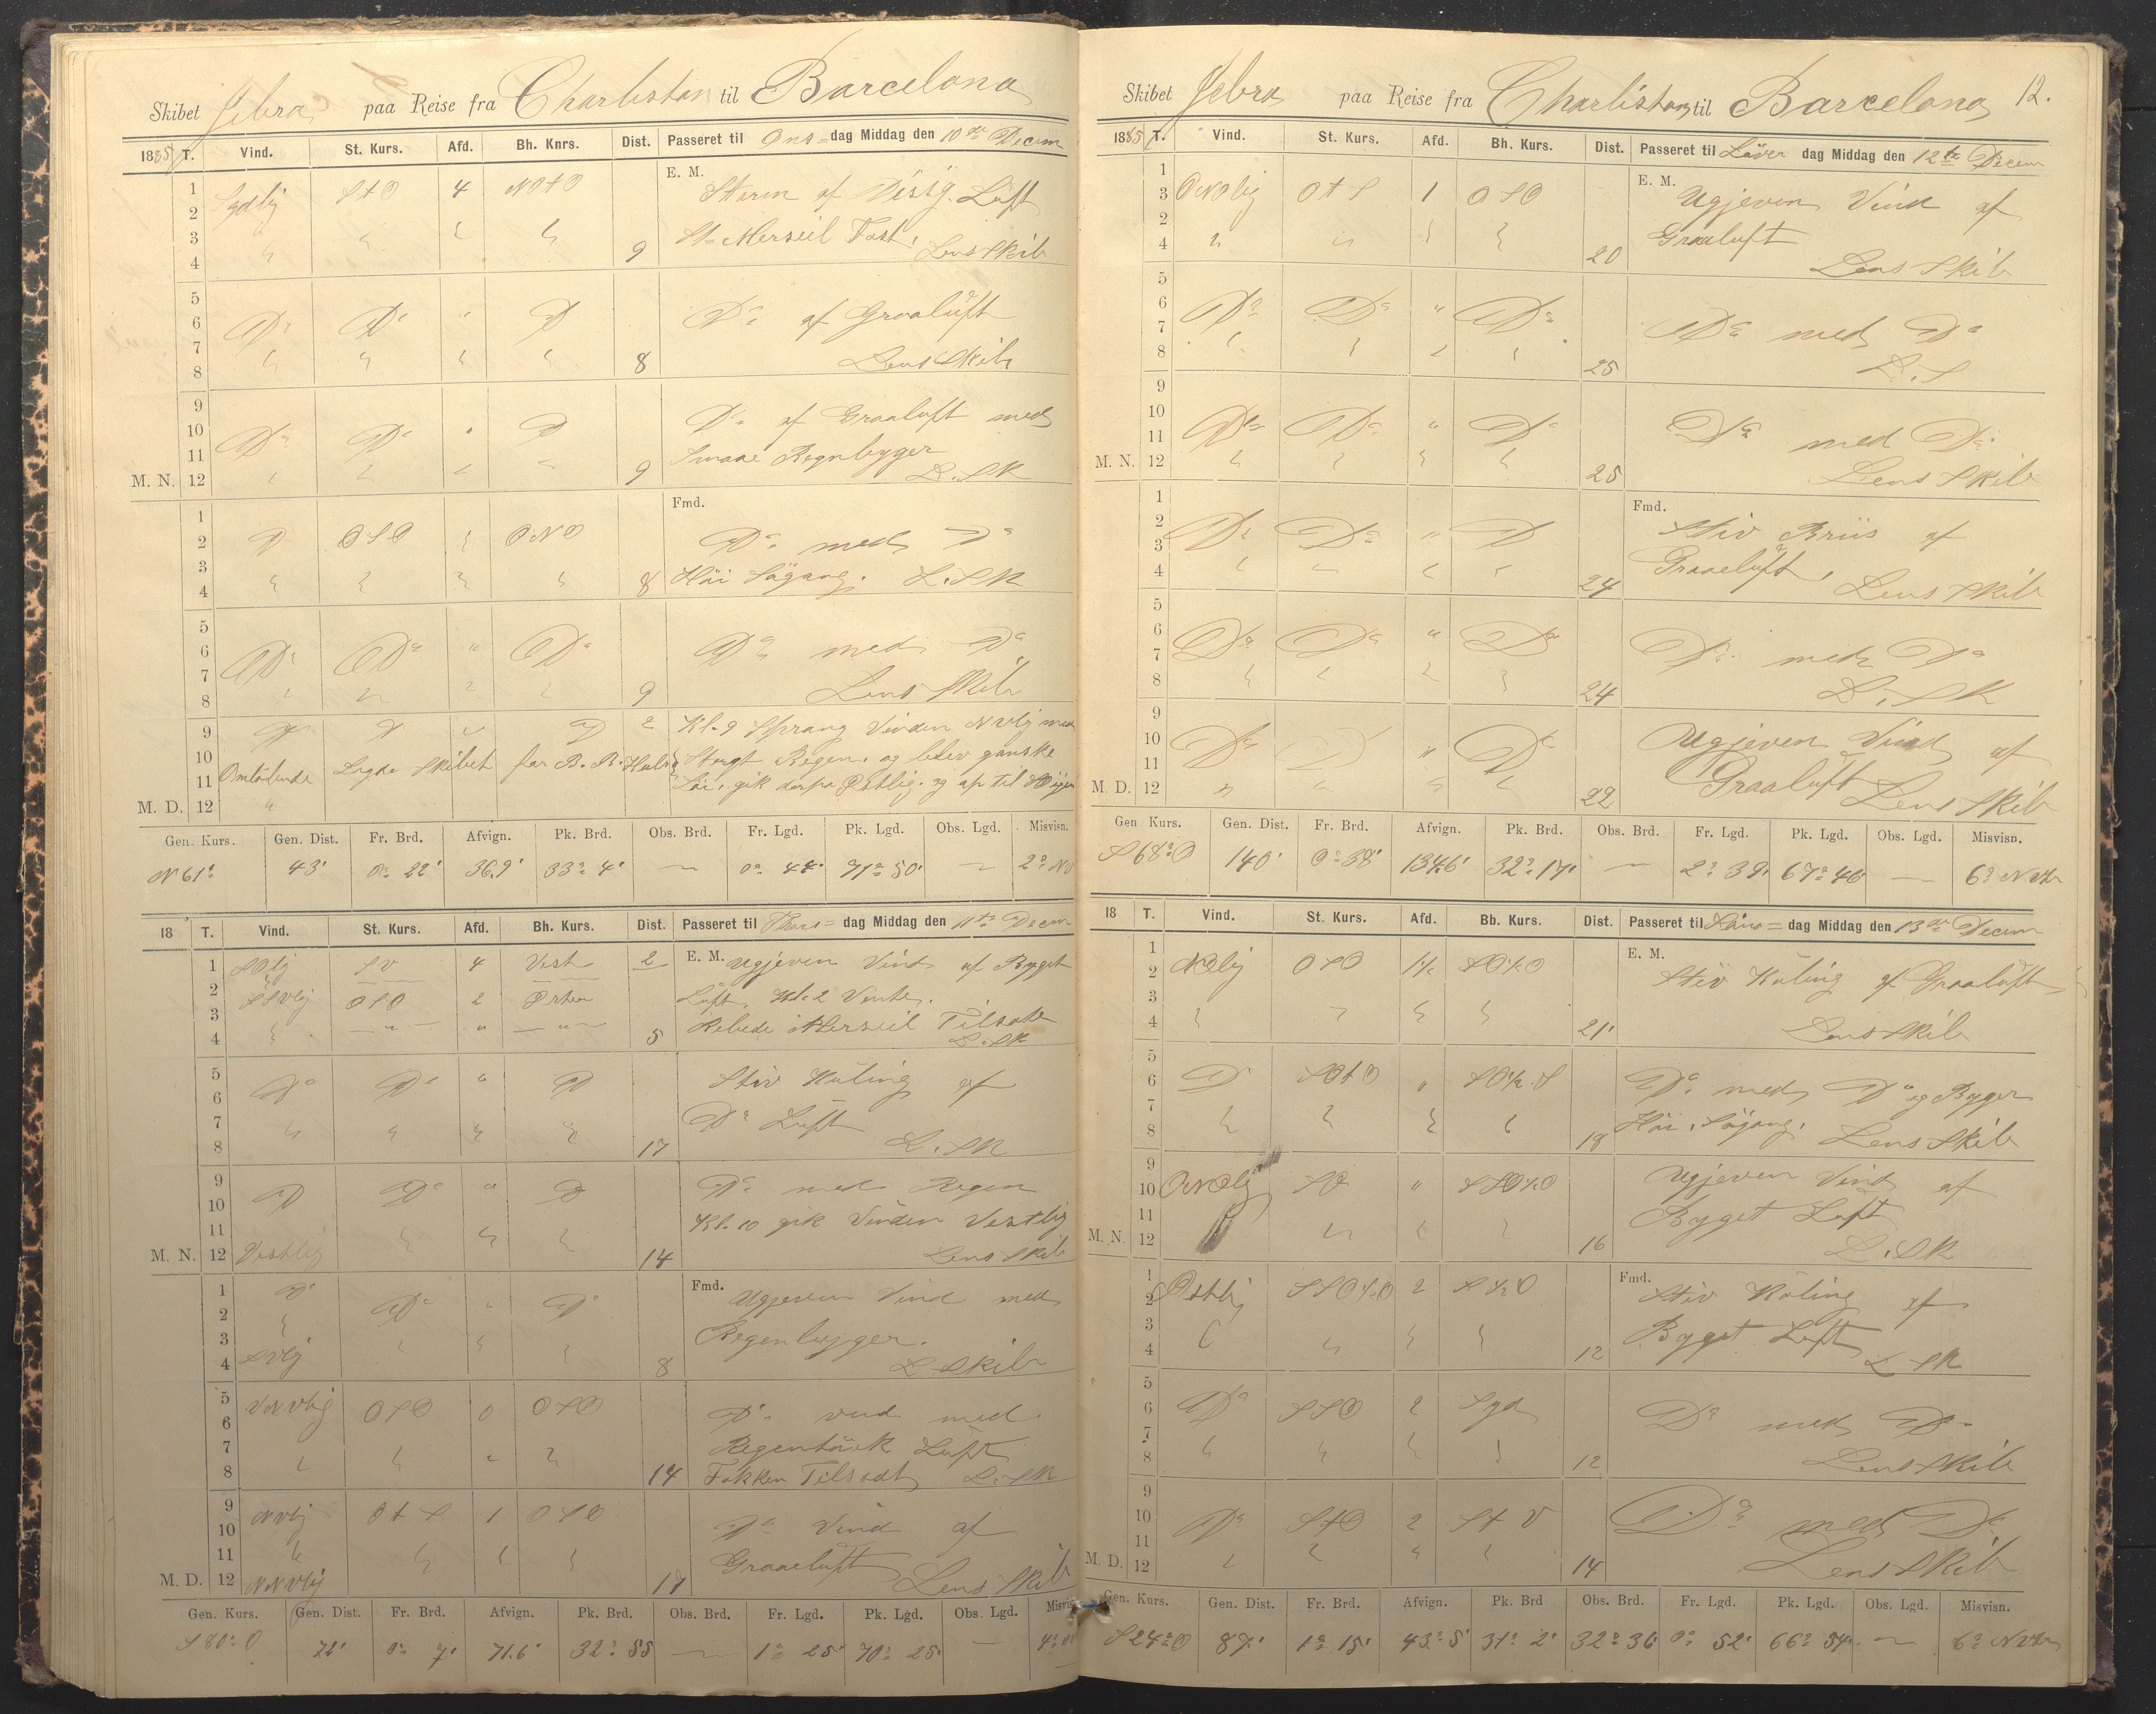 Skibet Jebra paa Reise fra Charlistan til Barcelona
1885 T. Vind. St. Kurs. Afd. Bh. Knrs. Dist. Passeret til Ons= dag Middag den 10de Decem
1 E. M.
2 Sydlig StO 4 NOtO Storm af Disig. Luft
3 St= Merseil Fast.
4 9 Lens Skib
5
6 Do Do " D Do af Graaluft
7
8 8 Lens Skib
9
10 Do Do " D Do af Graaluft med
11 Smaae Regnbyger
M. N. 12 9 L. SK
1 Fmd.
2 D OSO ONO Do med Do
3
4 8 Höi Sögang. L. SK
5
6 Do Do " Do Do med Do
7
8 9 Lens Skib
9 D D " D 2 Kl. 9 Sprang Vinden NVlig med
10 Stergt Regen. og blev ganske
11 Omlöbende Lagde Skibet for B. B. Hals
M. D. 12 " Löi. gik derpa Ostlig. og op til
Gen. Kurs. Gen. Dist. Fr. Brd. Afvign. Pk. Brd. Obs. Brd. Fr. Lgd. Pk. Lgd. Obs. Lgd. Misvisn.
N 61° 43' 0° 22' 36.9' 33° 4' — 0° 44' 71° 50' — 2° NV
18 T. Vind. St. Kurs. Afd. Bh. Kurs. Dist. Passeret til Thors= dag Middag den 11te Decem
1 SOlig SV 4 Vest 2 E. M. Ugjeven Vind af Byget
2 SSVlig OSO 2 Orten Luft. Kl. 2 Vente.
3 — " — " — " — Rebede Merseil Tilsate
4 5 L. SK
5 Stiv Kuling af
6 Do Do " D
7 Do Luft
8 17 L. SK
9 Do med Regen
10 D Do " D
11 Kl. 10 gik Vinden Vestlig
M. N. 12 Vestlig 14 Lens Skib
1 Do Fmd. Ugjeven Vind med
2 Do " Do
3 Regenbyger.
4 SVlig 8 L. Skib
5 VNVlig OSO 0 OSO
6 Do vind med
7 Regentöck Luft
8 14 Fokken Tilsadt L. SK
9 NVlig OtS 1 OSO
10 Do Vind af
11 Graaeluft
M. D. 12 NNVlig 17 Lens Skib
Gen. Kurs. Gen. Dist. Fr. Brd. Afvign. Pk. Brd. Obs. Brd. Fr. Lgd. Pk. Lgd. Obs. Lgd. Misvis
S 80° O 72' 0° 7' 71.6' 32° 55 — 1° 25' 70° 25' — 4°
Skibet Jebra paa Reise fra Charlistan til Barcelona 12.
1885 T. Vind. St. Kurs. Afd. Bh. Kurs. Dist. Passeret til Löver dag Middag den 12te Decem
1 E. M.
3 ONOlig OtS 1 OSO Ugjeven Vind af
2 Graaluft
4 20 Lens Skib
5
6 Do Do " Do Do med Do
7
8 25 L. S
9
10 Do Do " Do Do med Do
11
M. N. 12 25 Lens Skib
1 Fmd.
2 Do Do " D Stiv Briis af
3 Graaeluft.
4 24 Lens Skib
5
6 Do Do " Do Do med Do
7
8 24 L. SK
9
10 Do " Do Ugjeven Vind af
11 Graaluft
M. D. 12 22 Lens Skib
Gen Kurs. Gen. Dist. Fr. Brd. Afvign. Pk. Brd. Obs. Brd. Fr. Lgd. Pk. Lgd. Obs. Lgd. Misvisn.
S 68° O 140' 0° 38' 134.6' 32° 17' — 2° 39' 67° 46 — 6°
18 T. Vind. St. Kurs. Afd. Bb. Kurs. Dist. Passeret til Sön= dag Middag den 13de Decem
1 E. M.
2 NOlig OSO 1½ SO½O Stiv Kuling af Graaluft
3
4 21' Lens Skib
5
6 D SOtO " SO½S Do med Do og Byger
7 Höi. Sögang.
8 18 Lens Skib
9 Ugjeven Vind af
10 ONOlig SO " SSO½O
11 Byget Luft
M. N. 12 16 L. SK
1 Fmd.
2 Ostlig SSO½O 2 S½O Stiv Kuling af
3 Byget Luft
4 12 L SK
5
6 Do SSO 2 Syd Do med Do
7
8 12 Lens Skib
9
10 Do StO 2 St V Do med Do
11
M. D. 12 14 Lens Skib
Gen. Kurs. Gen. Dist. Fr. Brd. Afvign. Pk. Brd Obs. Brd. Fr. Lgd. Pk. Lgd. Obs. Lgd. Misvisn.
S 24° O 87' 1° 15' 43° 5' 31° 2' 32° 36' 0° 52' 66° 54' — 6°